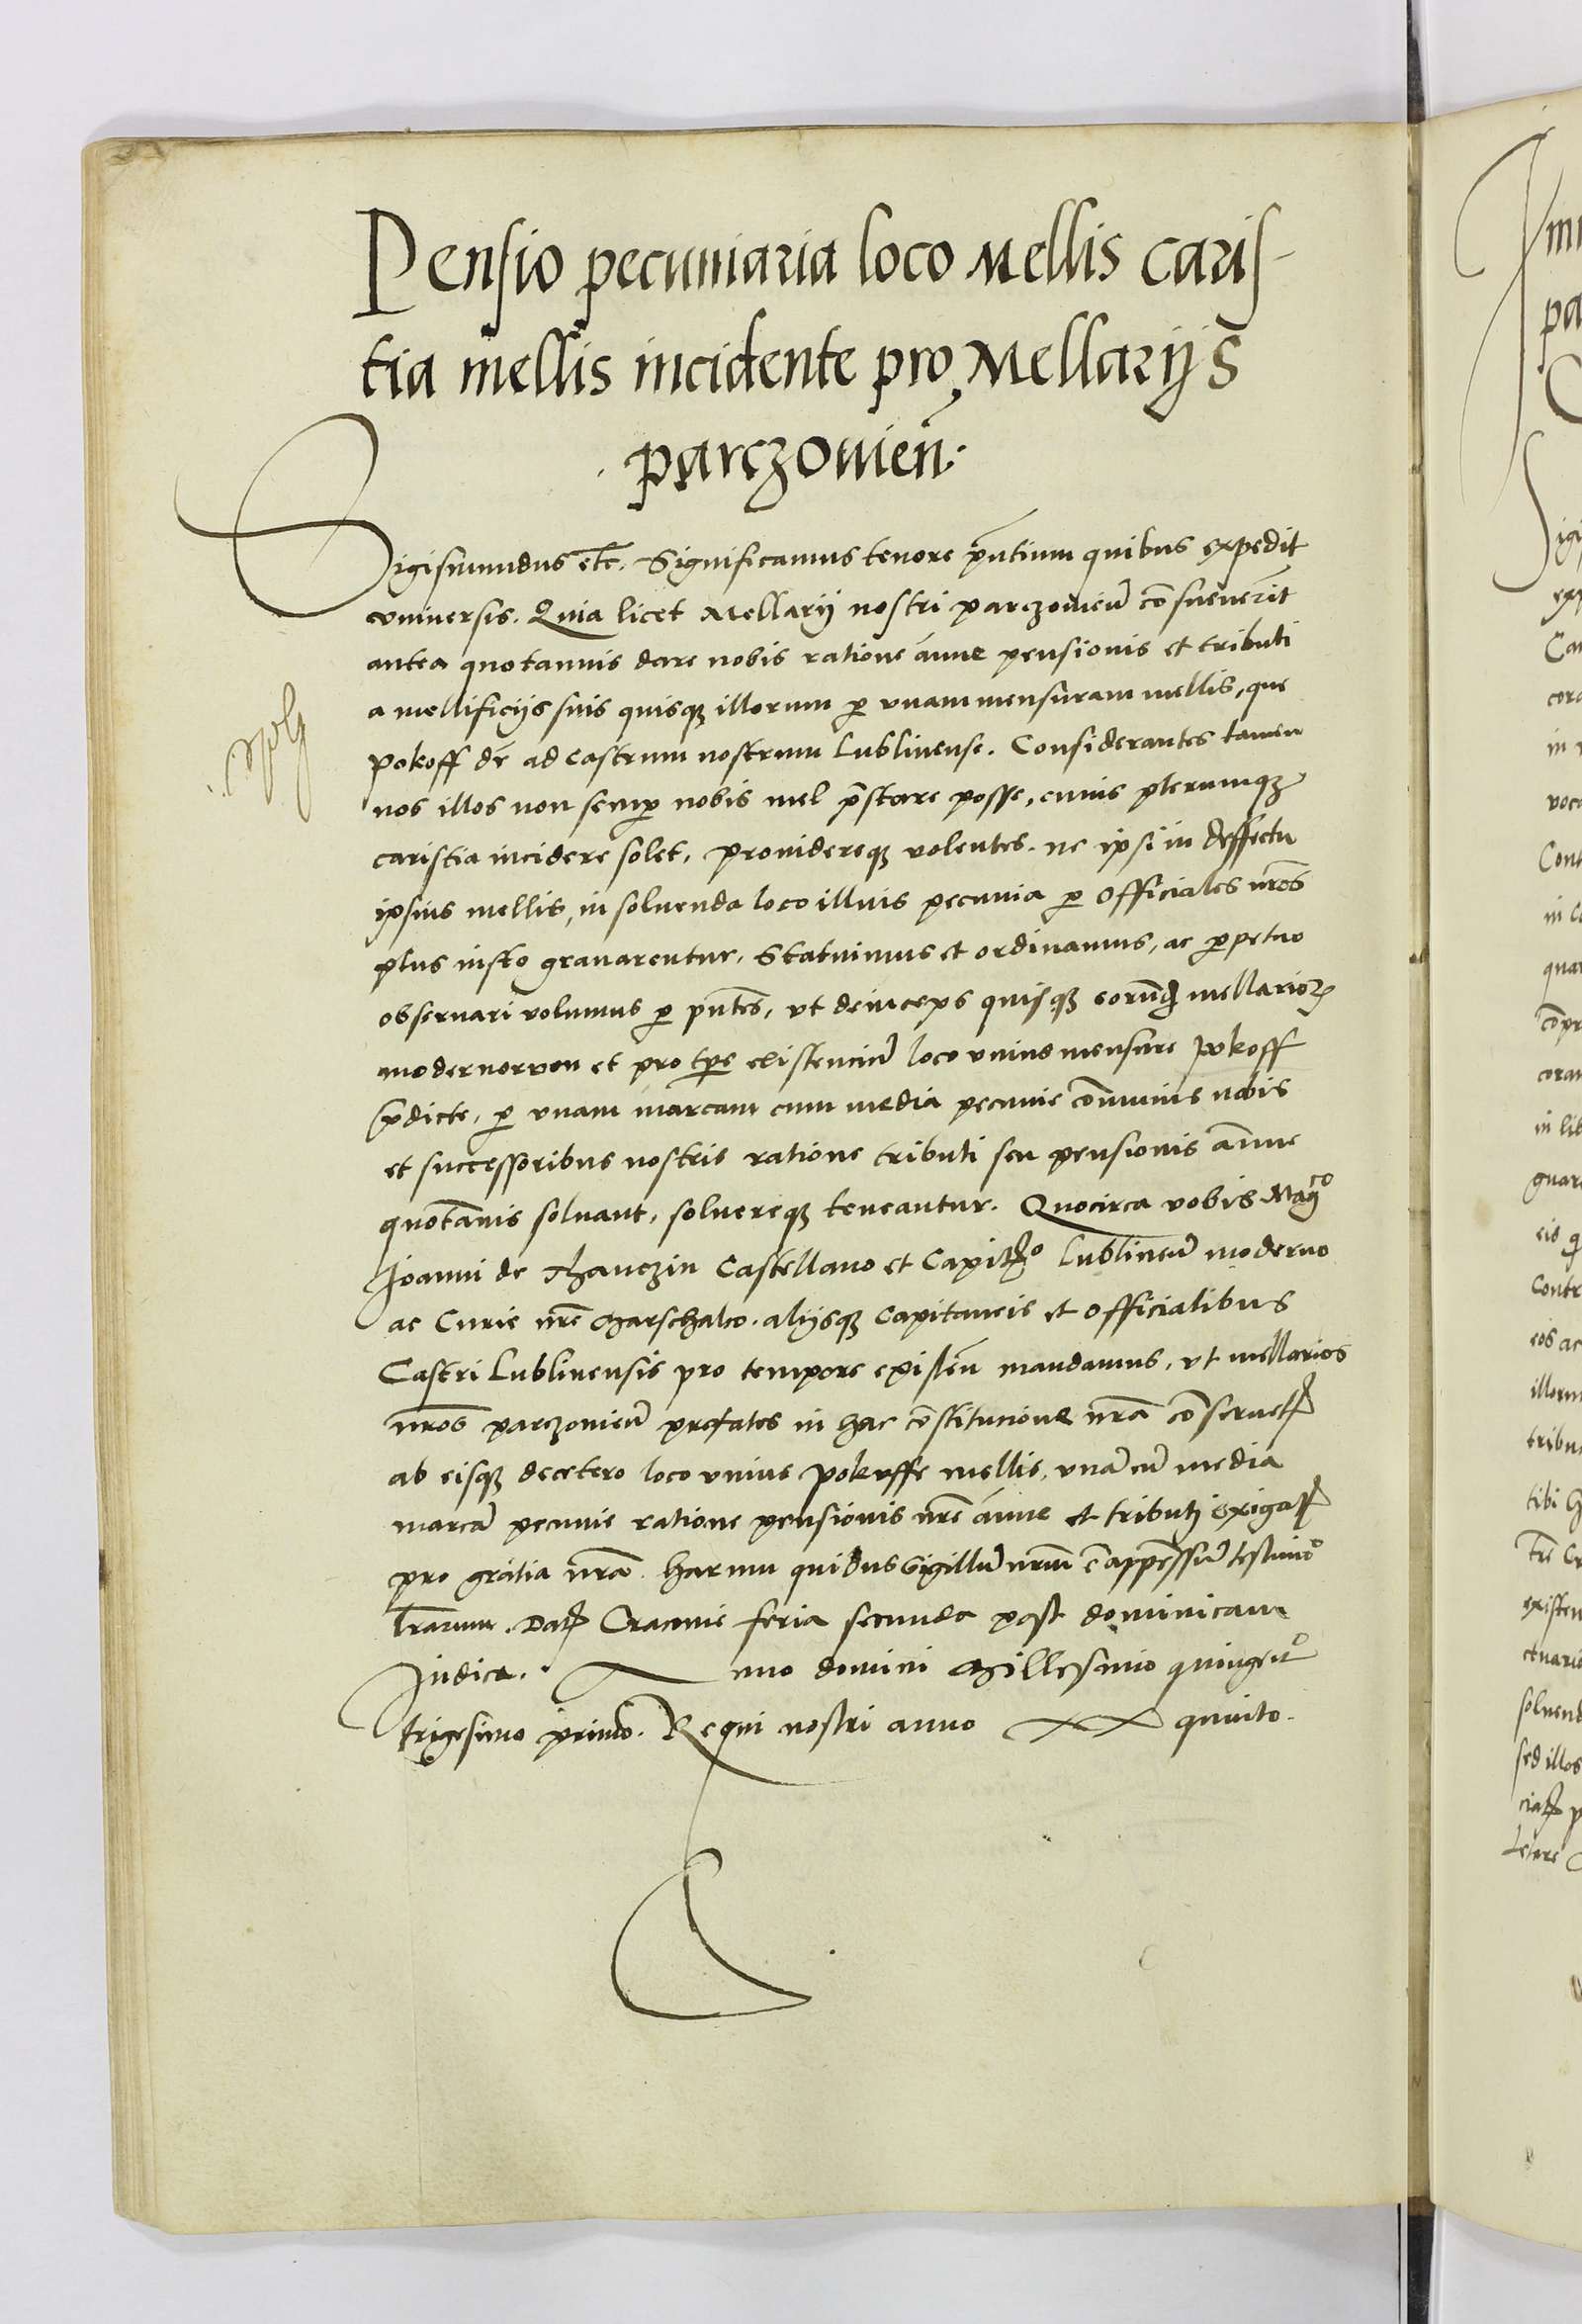 Pensio pecuniaria loco Mellis caris-
tia mellis incidente pro Mellarijs
parczouień.
Sigismundus etc. Significamus tenore pñtium quibus expedit
vniuersis. Quia licet Mellarij nostri parczouieñ cõsueuerĩt
antea quotannis dare nobis ratione ãnue pensionis et tributi
a mellificijs suis quisq3 illorum p vnam mensuram mellis, que
pokoff dr̃ ad castrum nostrum lublinense. Considerantes tamen
nos illos non semp nobis mel p̃stare posse, cuius plerumq3
caristia incidere solet, prouidereq3 volentes. ne ipsi in deffectu
ipsius mellis, in soluenda loco illius pecunia p officiales nr̃os
plus iusto grauarentur, Statuimus et ordinamus, ac p̱petuo
obseruari volumus p pñtes, vt deinceps quisq3 eorũdẽ mellarioꝝ
modernorum et pro tp̃e existenciũ loco vnius mensure pokoff
p̃dicte, p vnam marcam cum media pecunie cõmunis nobis
et successoribus nostris ratione tributi seu pensionis ãnue
quotãnis soluant, soluereq3 teneantur. Quocirca vobis Mag͡co
Joanni de Thanczin Castellano et Capit͡o lublineñ moderno
ac Curie nr̃e Marschalco. alijsq3 capitaneis et officialibus
Castri lublinensis pro tempore existeñ mandamus, vt mellarios
nr̃os parczouieñ prefatos in hac cõstitucione nr̃a cõseruetꝭ
ab eisq3 decetero loco vnius pokoffe mellis, vnã cũ media
marcã pecunie ratione pensionis nr̃e ãnue et tributi exigatꝭ
pro gratia nr̃a. harum quibus Sigillũ nr̃um ẽ appressũ testimõ
lr̃arum. Datꝭ Cracouie feria secunda post dominicam
Judica. Anno domini Millesimo quingeñto
trigesimo primo. Regni nostri anno XX quinto.